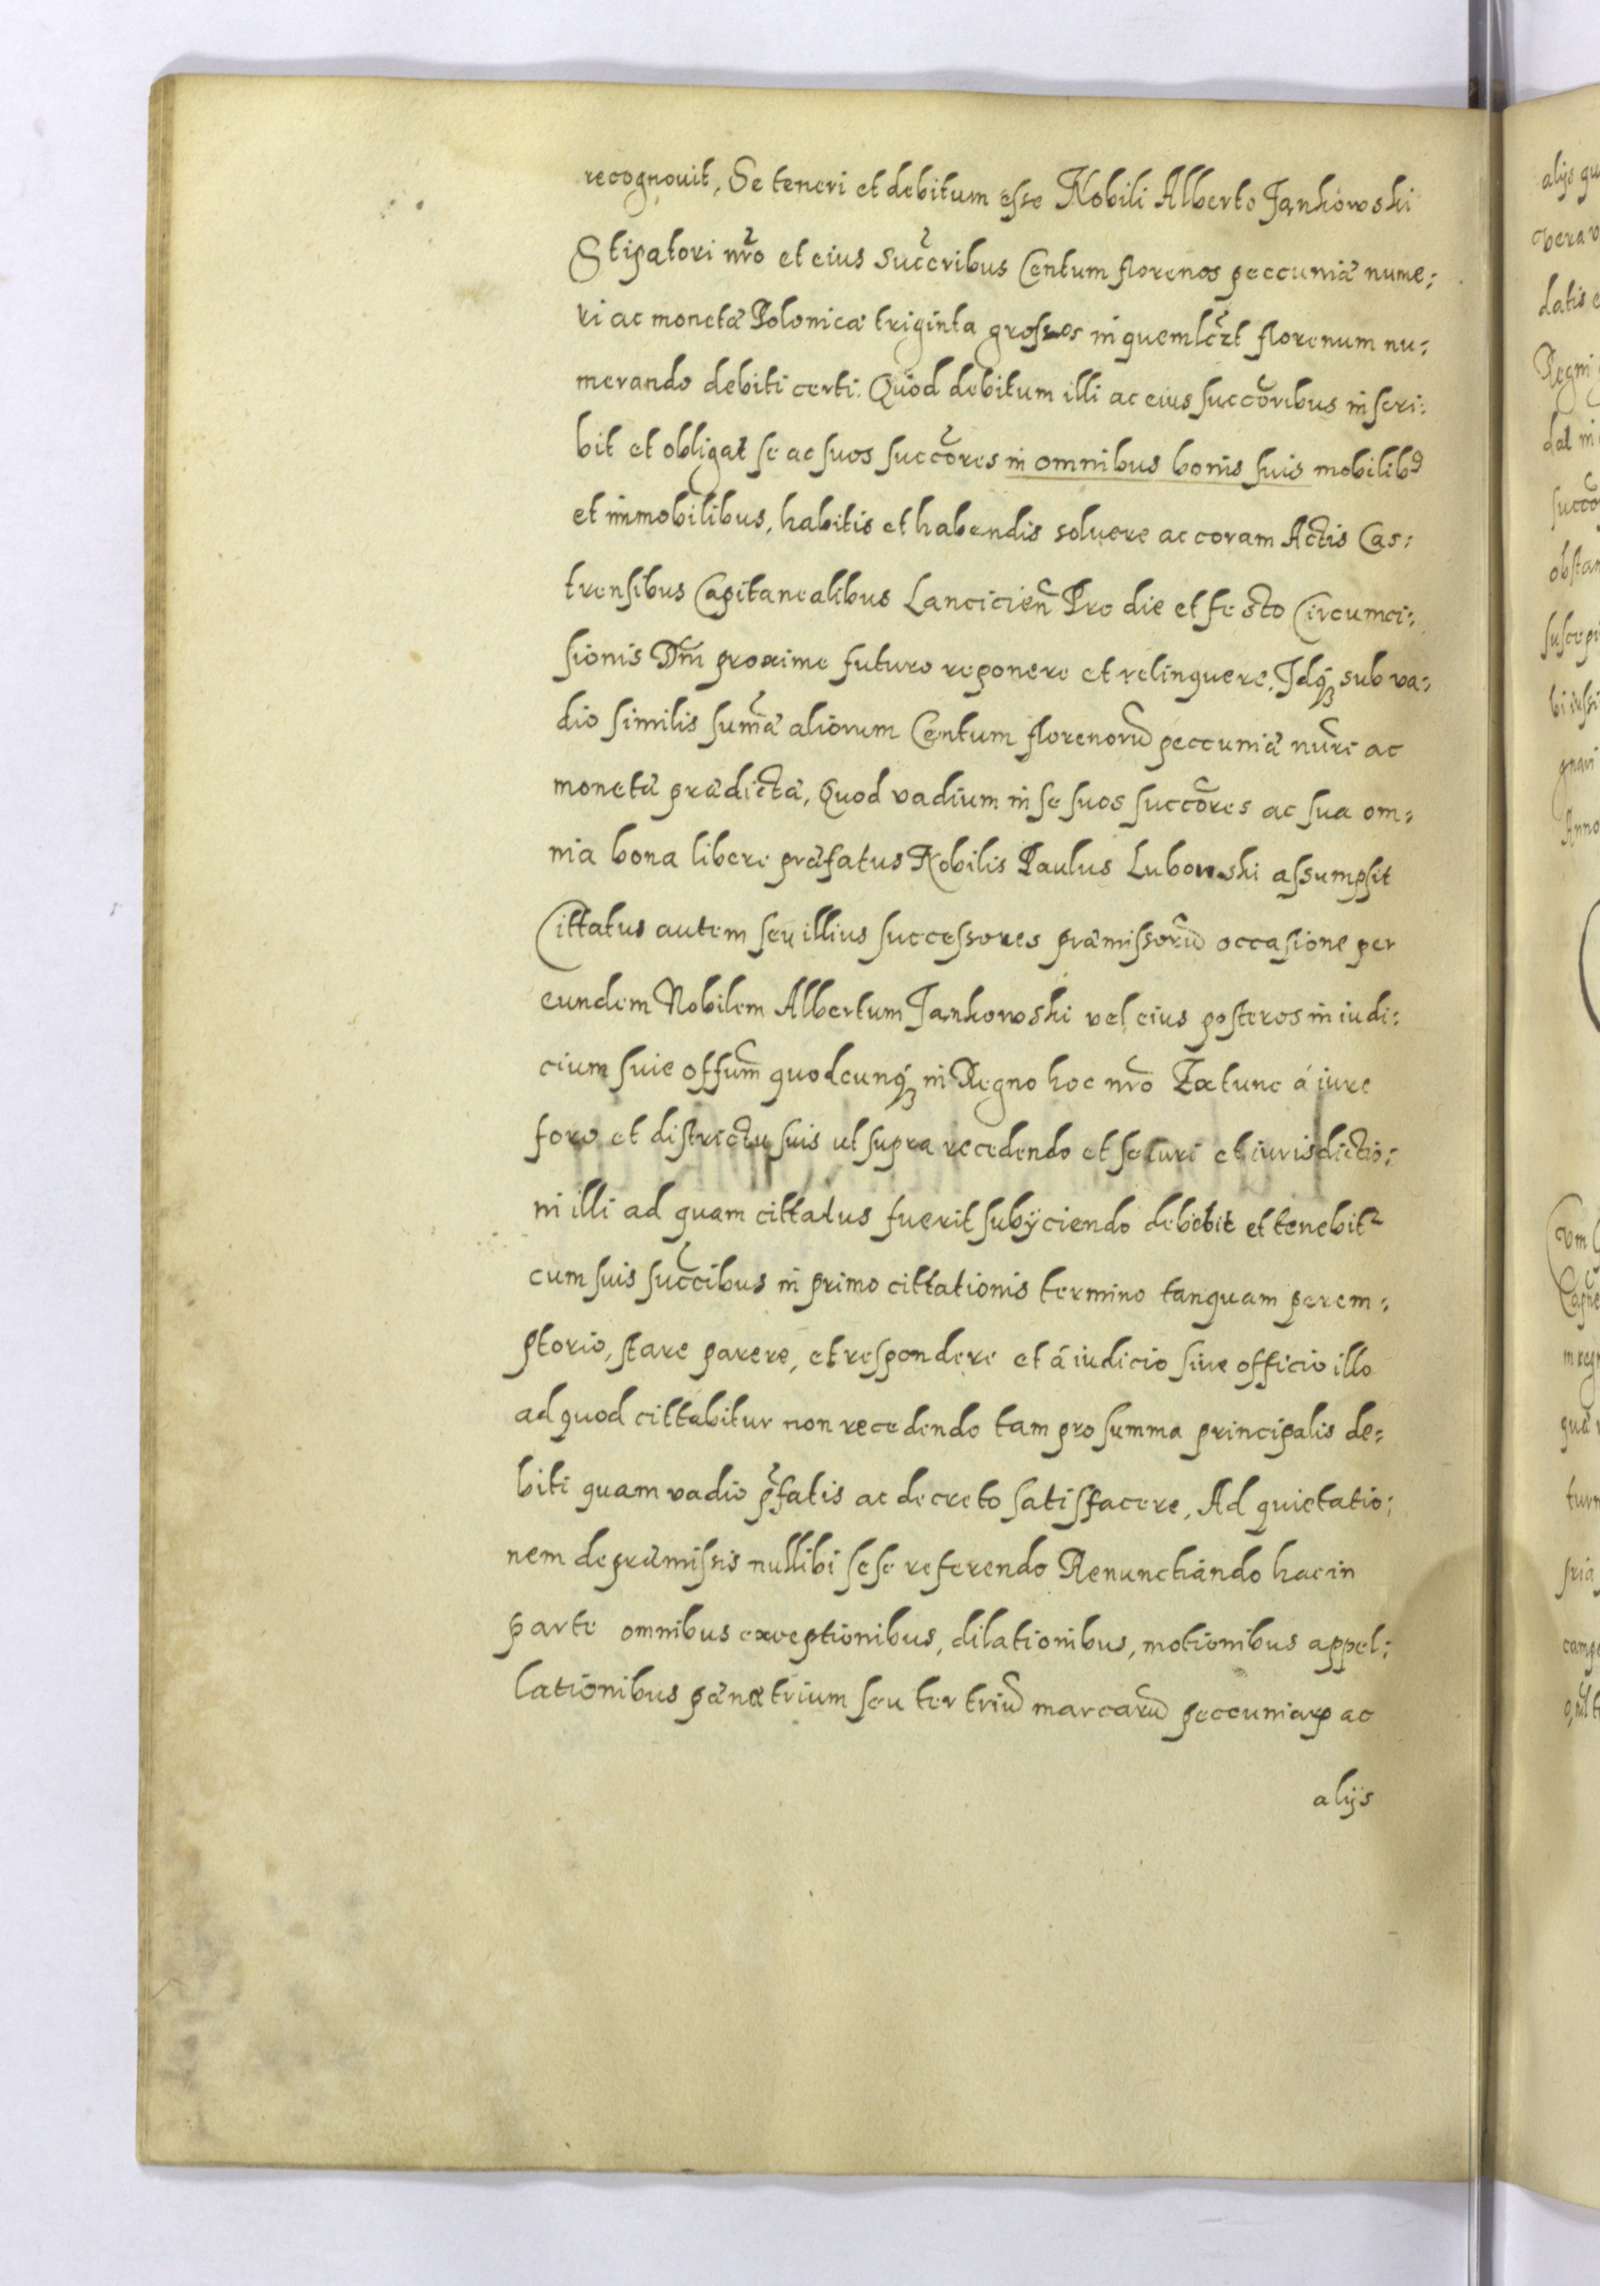 recognouit, Se teneri et debitum esse Nobili Alberto Jankowski
Stipatori nr̃o et eius Succ̃eribus Centum florenos peccuniæ nume:
ri ac monetæ Polonicæ triginta grossos in quemlꝫt florenum nu:
merando debiti certi. Quod debitum illi ac eius succõribus inscri:
bit et obligat se ac suos succõres in omnibus bonis suis mobilibꝰ
et immobilibus, habitis et habendis soluere ac coram Actis Cas:
trensibus Capitanealibus Lancicieñ Pro die et festo Circumci:
sionis Dñi proxime futuro reponere et relinquere, Jdqꝫ sub va:
dio similis sum̃æ aliorum Centum florenorũ peccuniæ nũri ac
monetæ prædictæ, Quod vadium in se suos succõres ac sua om:
nia bona libere præfatus Nobilis Paulus Lubowski assumpsit
Cittatus autem seu illius successores præmissorũ occasione per
eundem Nobilem Albertum Jankowski vel eius posteros in iudi:
cium siue offum̃ quodcunqꝫ in Regno hoc nr̃o Ex tunc á iure
foro et districtu suis ut supra recedendo et se iuri et iurisdictio:
ni illi ad quam cittatus fuerit subÿciendo debebit et tenebitᷣ
cum suis succ̃ibus in primo cittationis termino tanquam perem:
ptorio, stare parere, et respondere et á iudicio siue officio illo
ad quod cittabitur non recedendo tam pro summa principalis de:
biti quam vadio p̃fatis ac decreto satisfacere, Ad quietatio:
nem de præmissis nullibi sese referendo Renunctiando hac in
parte omnibus exceptionibus, dilationibus, motionibus appel:
lationibus pæna trium seu ter triũ marcarũ peccuniarꝝ ac
alÿs
alÿs
datis
Regni
Anno